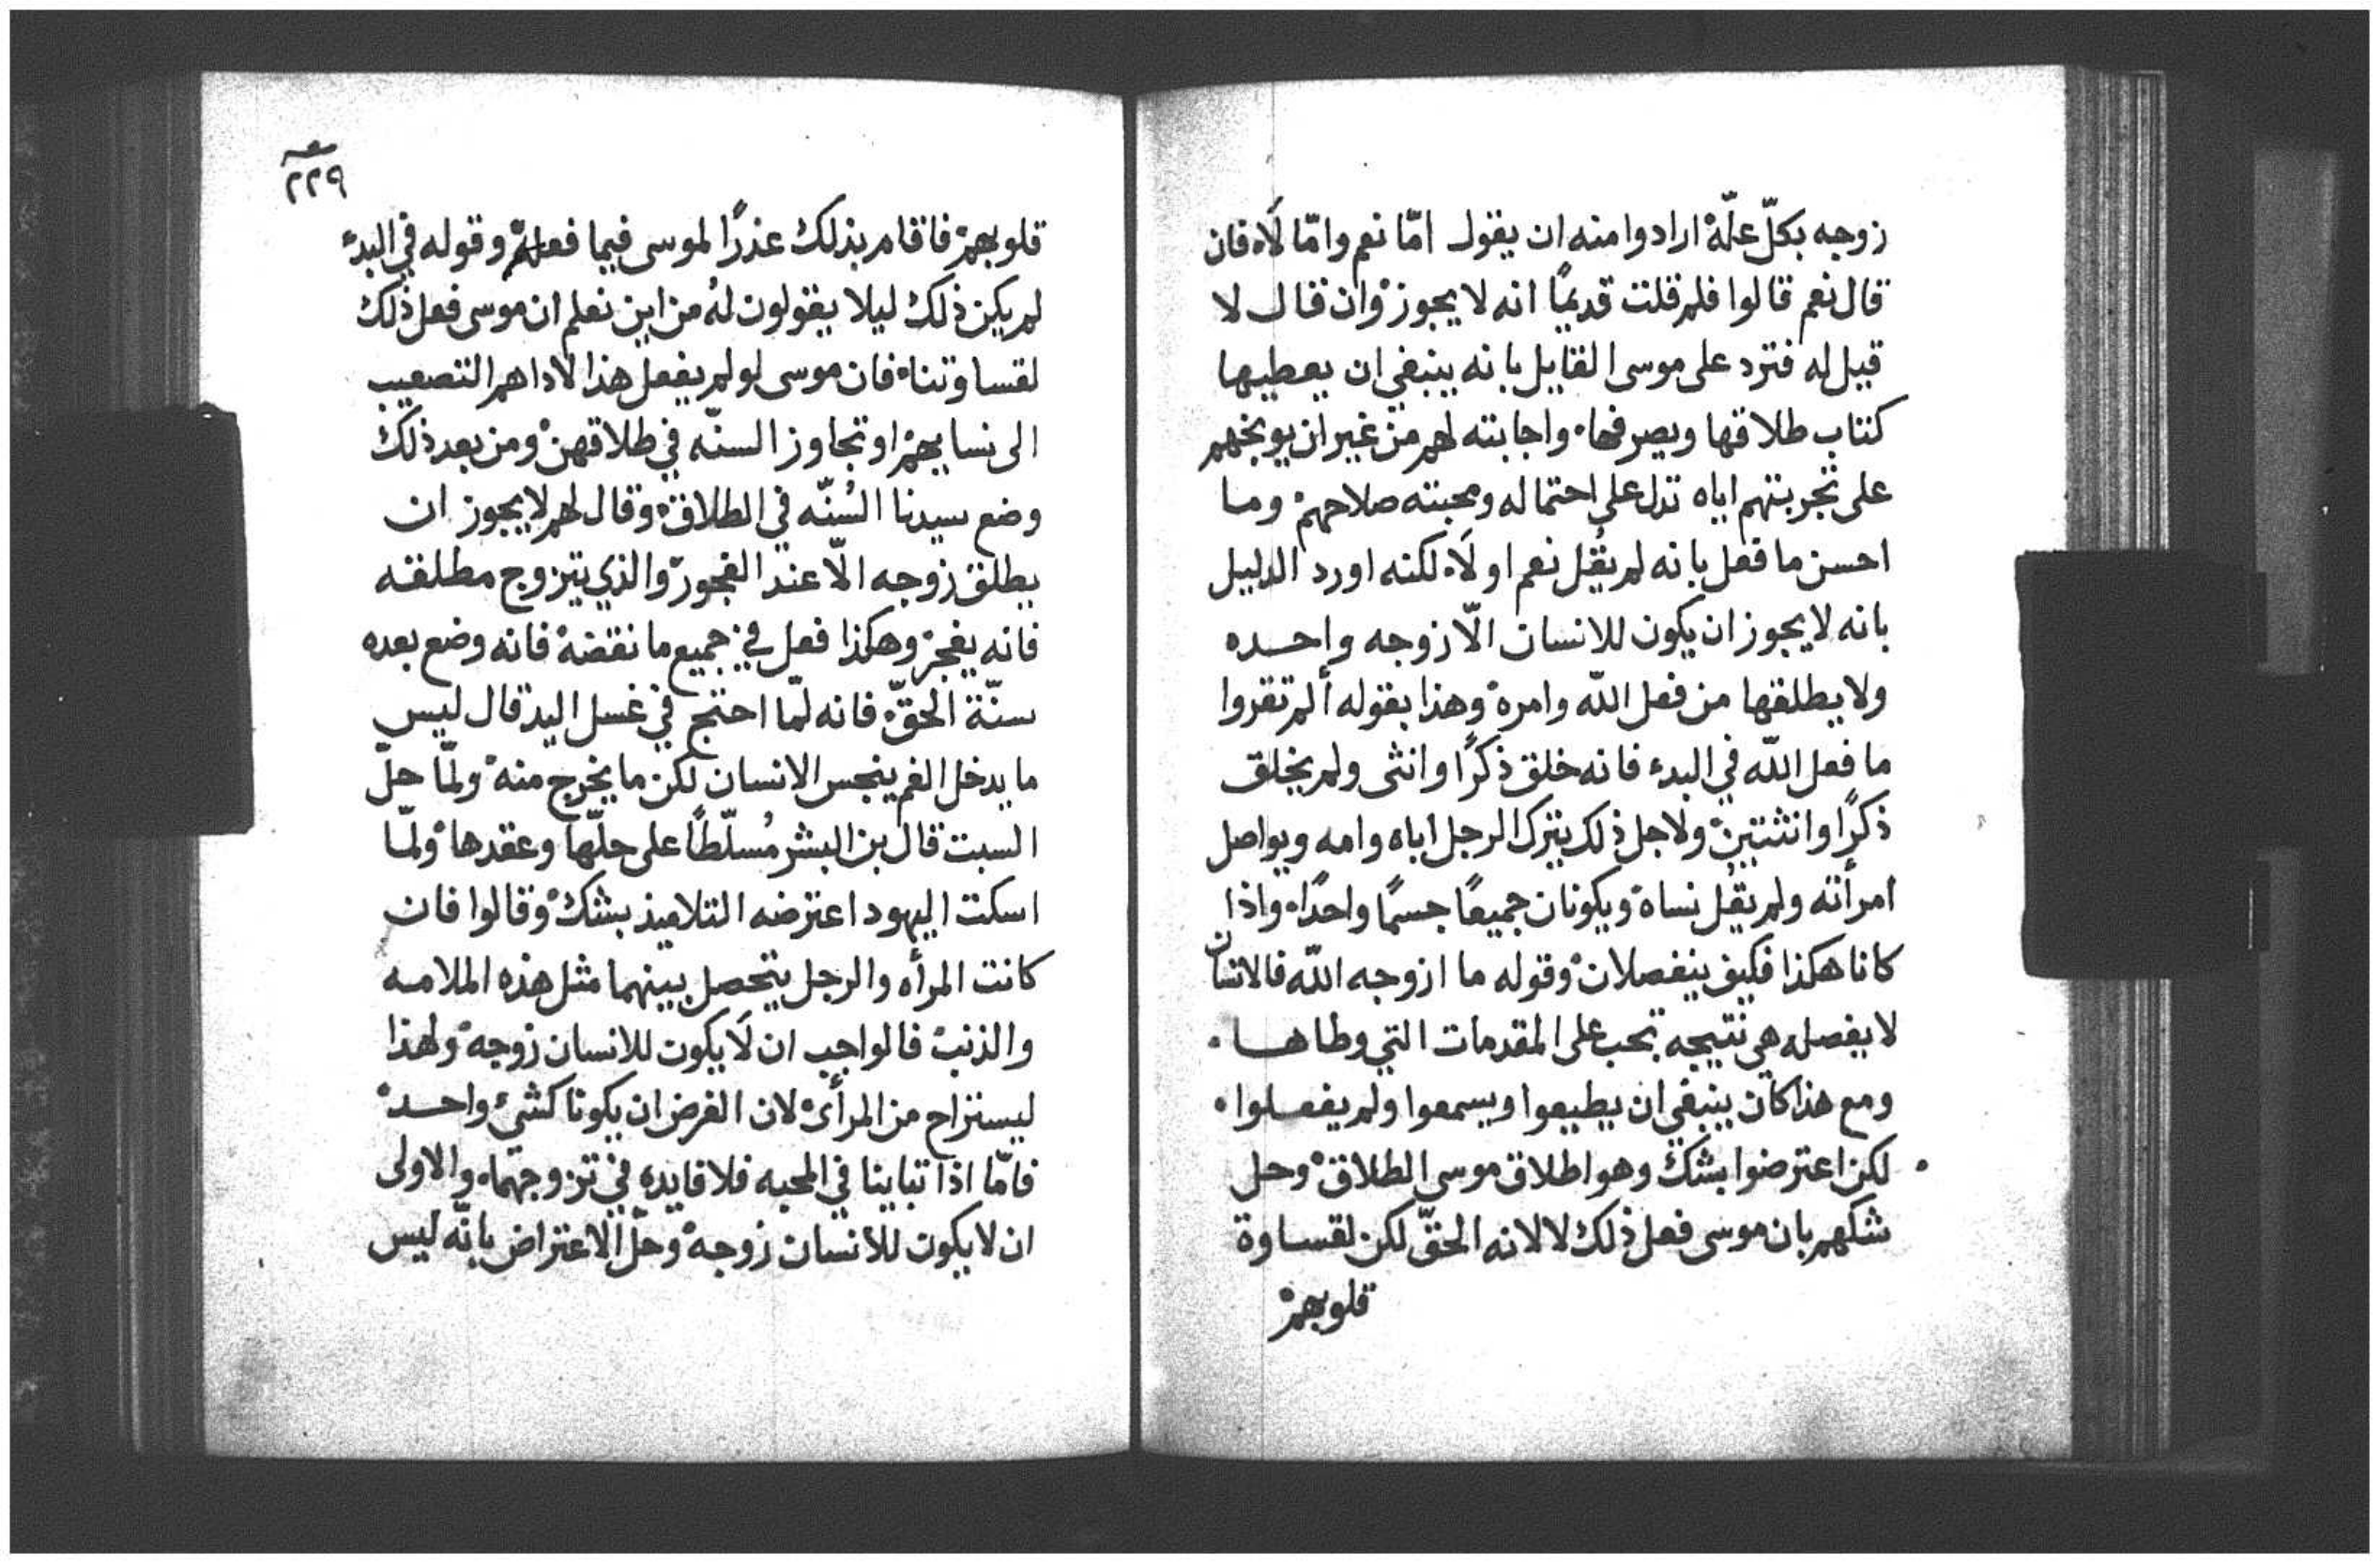 زوجه بكلّ علّة ارادوا منه ان يقول امّا نعم وامّا لَا، فان
قال نعم قالوا فلم قلت قديمًا انه لا يجوز وان قال لا
قيل له فترد على موسى القايل بانه ينبغي ان يعطيها
كتاب طلاقها ويصرفها، واجابته لهم من غير ان يوبخهم
على تجربتهم اياه تدل على احتماله ومحبته صلاحهم وما
احسن ما فعل بانه لم يقُل نعم او لَا، لكنه اورد الدليل
بانه لا يجوز ان يكون للانسان الّا زوجه واحده
ولا يطلقها من فعل الله وامره وهذا بقوله ألم تقروا
ما فعل الله في البدء فانه خلق ذكرًا وانثى ولم يخلق
ذكرًا وانثتين ولاجل ذلك يترك الرجل اباه وامه ويواصل
امرأته ولم يقُل نساه ويكونان جميعًا جسمًا واحدًا، واذا
كانا هكذا فكيف ينفصلان وقوله ما ازوجه الله فالانسان
لا يفصله هي نتيجه تجب على المقدمات التي وطاها.
ومع هذا كان ينبغي ان يطيعوا ويسمعوا ولم يفعلوا.
لكن اعترضوا بشك وهو اطلاق موسى الطلاق وحل
شكهم بان موسى فعل ذلك لا لانه الحقّ لكن لقساوة
قلوبهم
٢٢٩
قلوبهم فاقام بذلك عذرًا لموسى فيما فعله وقوله في البدء
لم يكن ذلك ليلا يقولون لهُ من اين نعلم ان موسى فعل ذلك
لقساوتنا، فان موسى لو لم يفعل هذا لاداهم التصعيب
الى نسايهم او تجاوز السنّه في طلاقهن ومن بعد ذلك
وضع سيدنا السُنّه في الطلاق وقال لهم لا يجوز ان
يطلق زوجه الّا عند الفجور والذي يتزوج مطلقه
فانه يفجر وهكذا فعل في جميع ما نقضه فانه وضع بعده
سنّة الحقّ، فانه لمّا احتج في غسل اليد قال ليس
ما يدخل الفم ينجس الانسان لكن ما يخرج منه ولمّا حلّ
السبت قال بن البشر مُسلّطًا على حلّها وعقدها ولمّا
اسكت اليهود اعترضه التلاميذ بشك وقالوا فان
كانت المرأه والرجل يتحصل بينهما مثل هذه الملامه
والذنب فالواجب ان لَا يكون للانسان زوجه ولهذا
ليستراح من المرأى لان الغرض ان يكونا كشيء واحد
فامّا اذا تباينا في المحبه فلا فايده في تزوجهما، والاولى
ان لا يكون للانسان زوجه وحلّ الاعتراض بانّه ليس